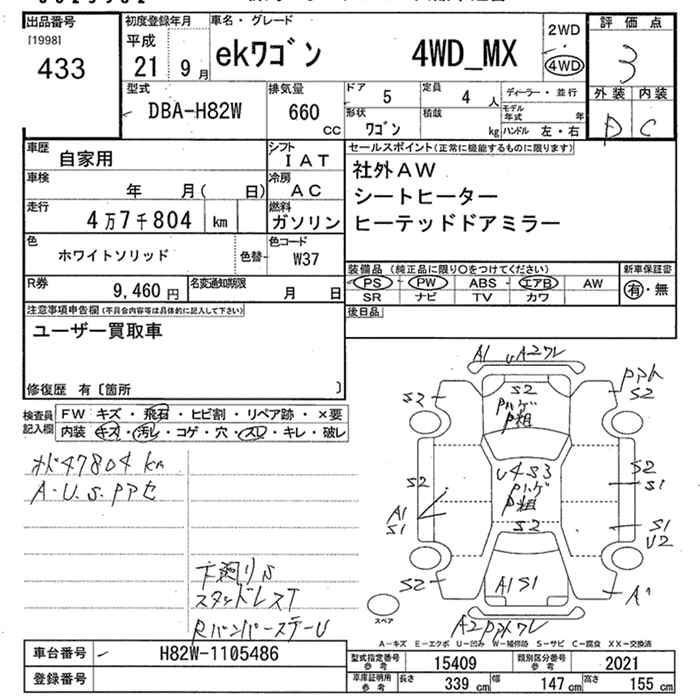 出品番号
[1998]
433
初度登録年月
平成
21 9月
車名・グレード
ekワゴン 4WD_MX
2WD
4WD
評価点
3
外装 内装
D C
型式
DBA-H82W
排気量
660 CC
ドア
5
定員
4 人
ディーラー・並行
形状
ワゴン
積載
kg
モデル年式 年
ハンドル 左・右
車歴
自家用
シフト
IAT
車検
年 月( 日)
冷房
AC
走行
4万7千804 km
燃料
ガソリン
色
ホワイトソリッド
色替
色コード
W37
R券
9,460 円
名変通知期限
月 日
セールスポイント(正常に機能するものに限ります)
社外AW
シートヒーター
ヒーテッドドアミラー
装備品(純正品に限り○をつけてください)
新車保証書
PS PW ABS エアB AW
有・無
SR ナビ TV カワ
後日品
注意事項申告欄(不具合内容等は具体的に記入して下さい)
ユーザー買取車
修復歴 有〔箇所 〕
検査員記入欄
FW キズ・飛石・ヒビ割・リペア跡・×要
内装 キズ・汚レ・コゲ・穴・スレ・キレ・破レ
47804 km
A・U.S.PPアセ
下廻りS
スタッドレスT
RバンパーステーU
A1 UA2ワレ
S2 S2 S2
Pハゲ
P粗
S2 U4S3 S2
Pハゲ S1
P粗
A1
S1 S2 S1
U2
S2 A1S1 A1
スペア
A2PPメワレ
A-キズ E-エクボ U-凹み W-補修跡 S-サビ C-腐食 XX-交換済
車台番号
H82W-1105486
登録番号
型式指定番号
参考
15409
類別区分番号
参考
2021
車庫証明用
参考
長さ 339 cm
幅 147 cm
高さ 155 cm